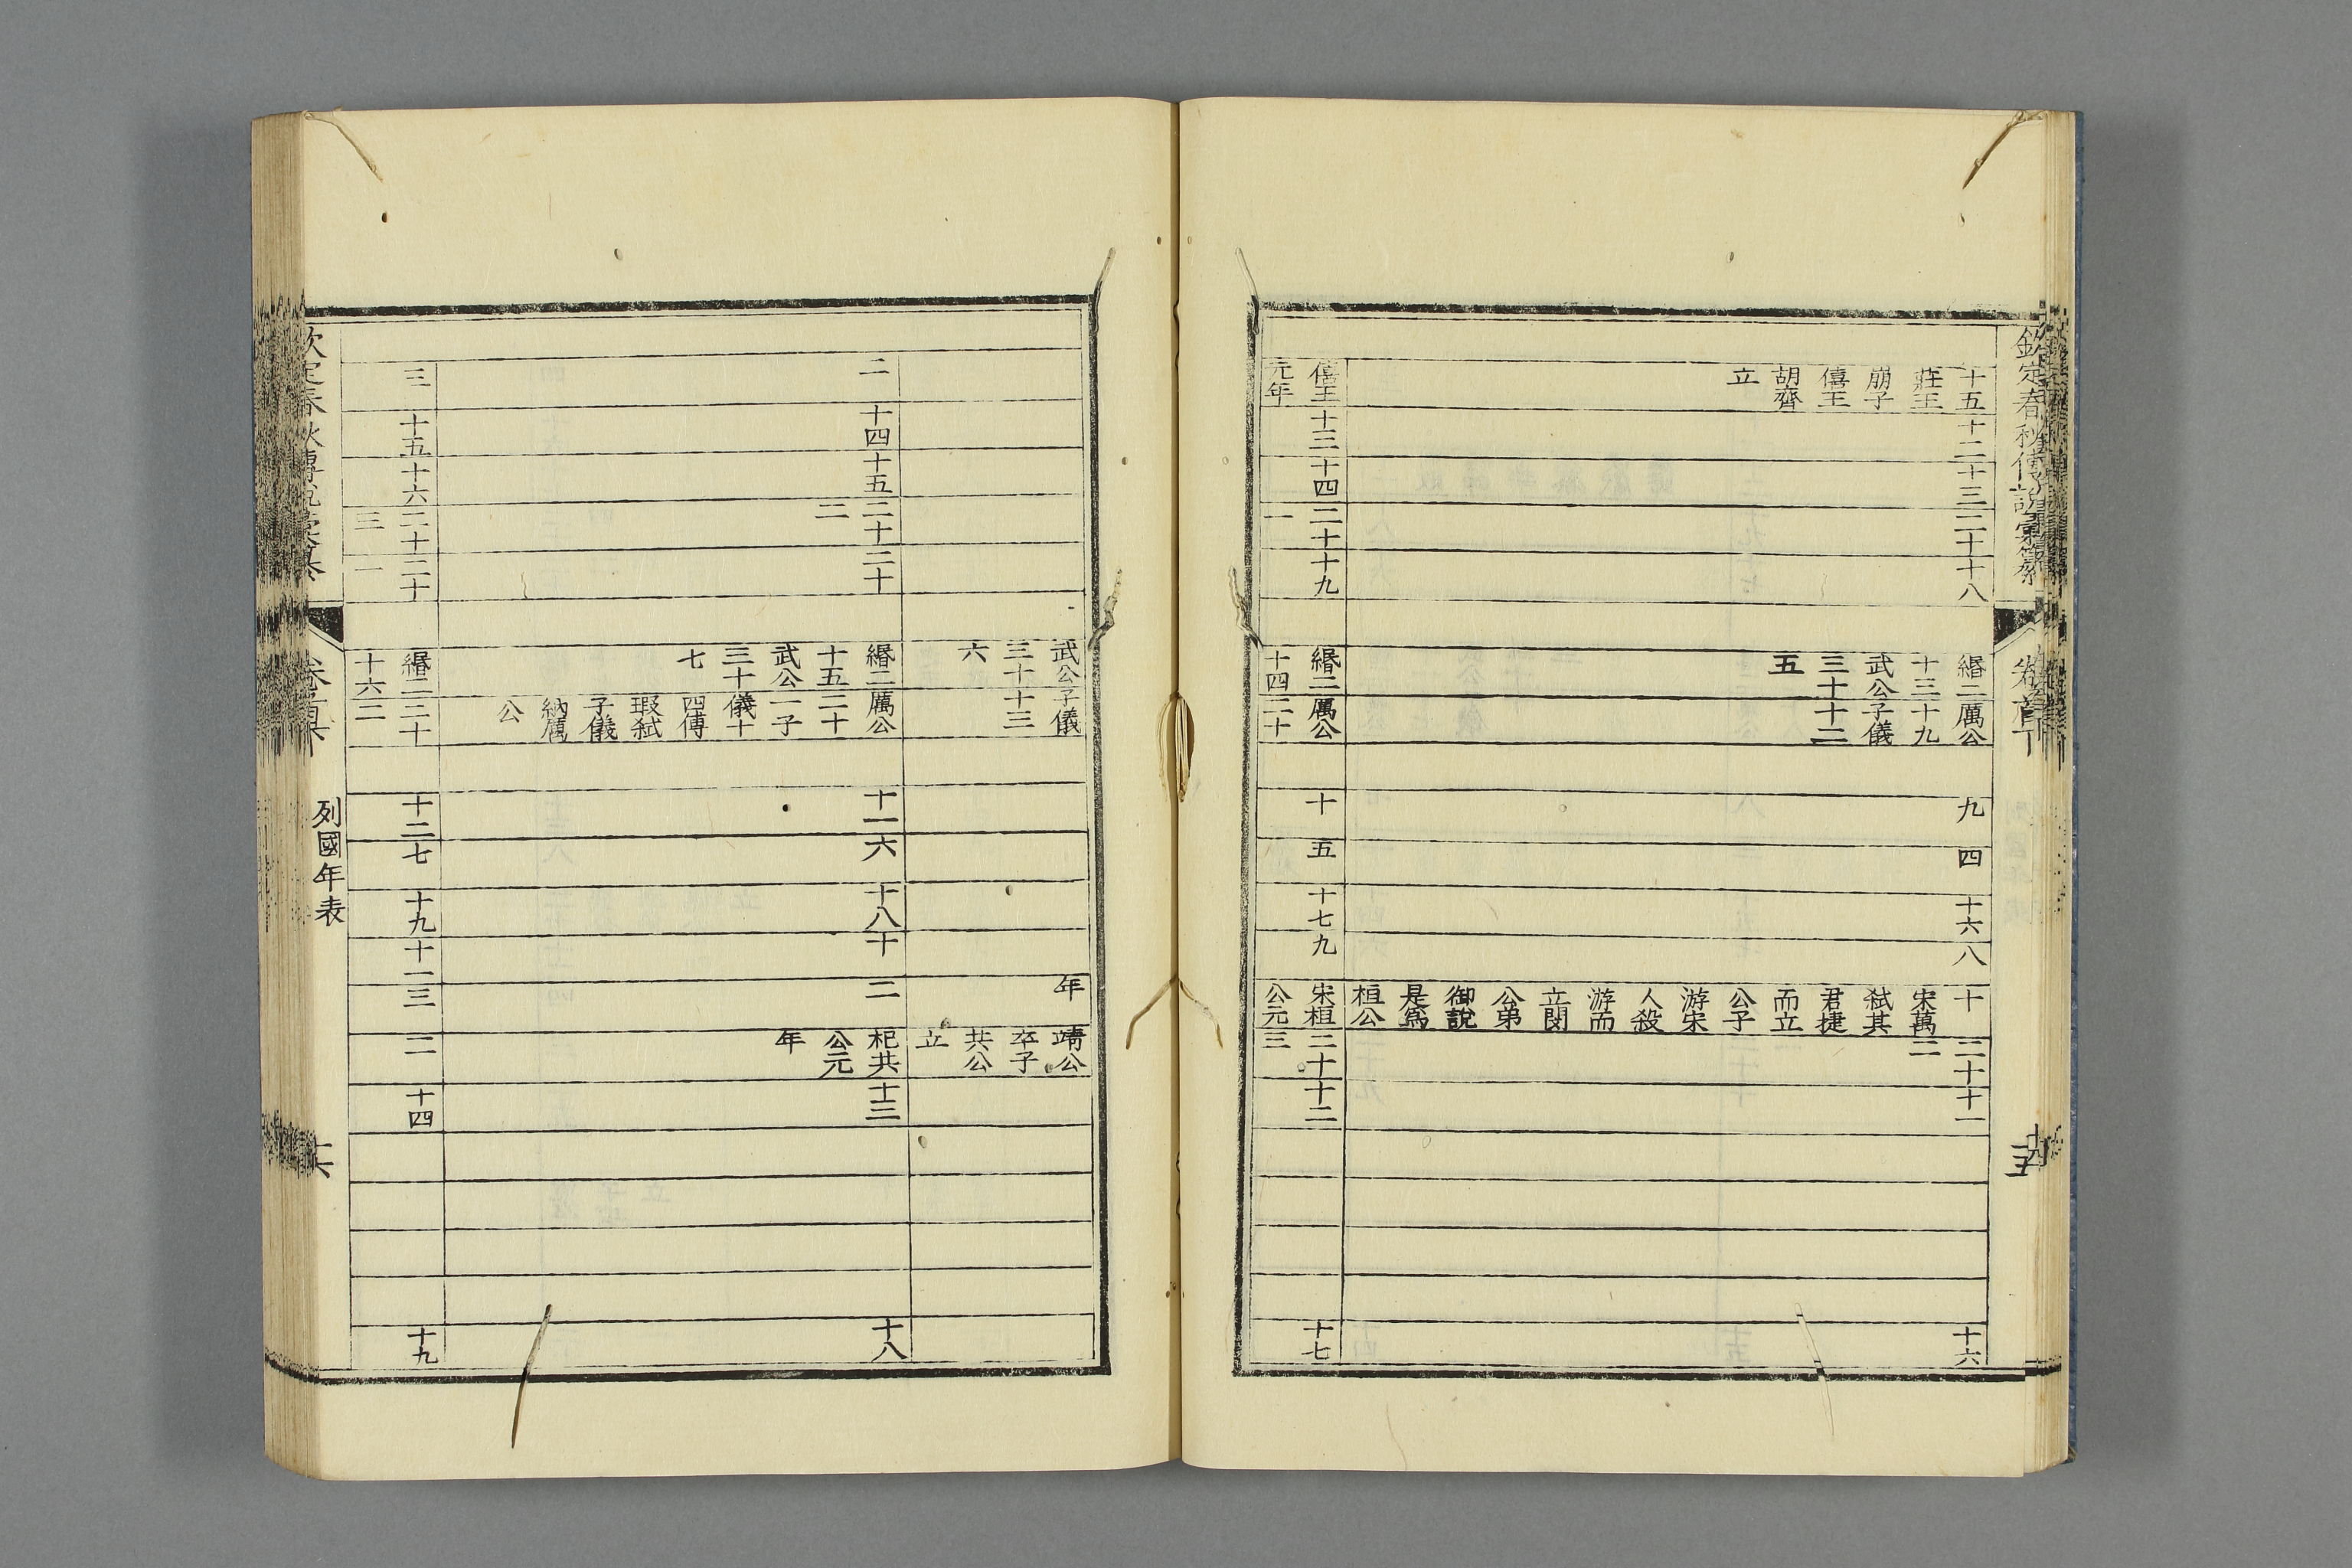 欽定春秋傳說彙纂
卷首下
十五
莊王
崩子
僖王
胡齊
立
十二
十三
二十
十八
緡二
十三
武公
三十
五
厲公
十九
子儀
十二
九
四
十六
八
十
宋萬
弒其
君捷
而立
公子
游宋
人殺
游而
立閔
公弟
御說
是為
桓公
二十
二
十一
十六
僖王
元年
十三
十四
二十
一
十九
緡二
十四
厲公
二十
十
五
十七
九
宋桓
公元
二十
三
十二
十七
武公
三十
六
子儀
十三
年
靖公
卒子
共公
立
二
十四
十五
二十
二
二十
緡二
十五
武公
三十
七
厲公
二十
一子
儀十
四傅
瑕弒
子儀
納厲
公
十一
六
十八
十
二
杞共
公元
年
十三
十八
三
十五
十六
二十
三
二十
一
緡二
十六
二十
二
十二
七
十九
十一
三
二
十四
十九
卷首下
列國年表